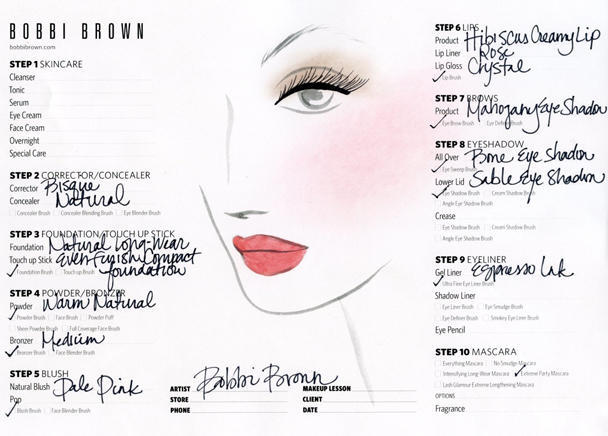 BOBBI BROWN
bobbibrown.com
STEP 1 SKINCARE
Cleanser
Tonic
Serum
Eye Cream
Face Cream
Overnight
Special Care
STEP 2 CORRECTOR/CONCEALER
Corrector Bisque
Concealer Natural
Concealer Brush Concealer Blending Brush Eye Blender Brush
STEP 3 FOUNDATION/TOUCH UP STICK
Foundation Natural Long-Wear
Touch up Stick Even Finish Compact
foundation
Foundation Brush Touch-up Brush
STEP 4 POWDER/BRONZER
Powder Warm Natural
Powder Brush Face Brush Powder Puff
Sheer Powder Brush Full Coverage Face Brush
Bronzer Medium
Bronzer Brush Face Blender Brush
STEP 5 BLUSH
Natural Blush Pale Pink
Pop
Blush Brush Face Blender Brush
ARTIST Bobbi Brown
STORE
PHONE
MAKEUP LESSON
CLIENT
DATE
STEP 6 LIPS
Product Hibiscus Creamy Lip
Lip Liner Rose
Lip Gloss Crystal
Lip Brush
STEP 7 BROWS
Product Mahogany Eye Shadow
Eye Brow Brush Eye Definer Brush
STEP 8 EYESHADOW
All Over Bone Eye Shadow
Eye Sweep Brush
Lower Lid Sable Eye Shadow
Eye Shadow Brush Cream Shadow Brush
Angle Eye Shadow Brush
Crease
Eye Shadow Brush Cream Shadow Brush
Angle Eye Shadow Brush
STEP 9 EYELINER
Gel Liner Espresso Ink
Ultra Fine Eye Liner Brush
Shadow Liner
Eye Liner Brush Eye Smudge Brush
Eye Definer Brush Smokey Eye Liner Brush
Eye Pencil
STEP 10 MASCARA
Everything Mascara No Smudge Mascara
Intensifying Long-Wear Mascara Extreme Party Mascara
Lash Glamour Extreme Lengthening Mascara
OPTIONS
Fragrance